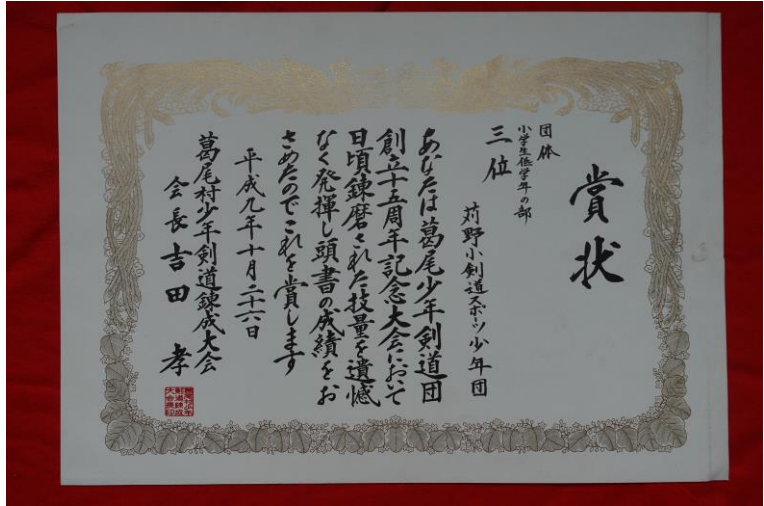 賞状
団体
小学生低学年の部
三位
苅野小剣道スポーツ少年団
あなたは葛尾少年剣道団
創立十五周年記念大会において
日頃錬磨された技量を遺憾
なく発揮し頭書の成績をお
さめたのでこれを賞します
平成九年十月二十六日
葛尾村少年剣道錬成大会
会長吉田孝